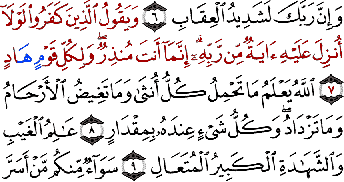 وَإِنَّ رَبَّكَ لَشَدِيدُ ٱلْعِقَابِ ٦ وَيَقُولُ ٱلَّذِينَ كَفَرُوا۟ لَوْلَآ
أُنزِلَ عَلَيْهِ ءَايَةٌ مِّن رَّبِّهِۦٓ ۗ إِنَّمَآ أَنتَ مُنذِرٌ ۖ وَلِكُلِّ قَوْمٍ هَادٍ
٧ ٱللَّهُ يَعْلَمُ مَا تَحْمِلُ كُلُّ أُنثَىٰ وَمَا تَغِيضُ ٱلْأَرْحَامُ
وَمَا تَزْدَادُ ۖ وَكُلُّ شَىْءٍ عِندَهُۥ بِمِقْدَارٍ ٨ عَـٰلِمُ ٱلْغَيْبِ
وَٱلشَّهَـٰدَةِ ٱلْكَبِيرُ ٱلْمُتَعَالِ ٩ سَوَآءٌ مِّنكُم مَّنْ أَسَرَّ